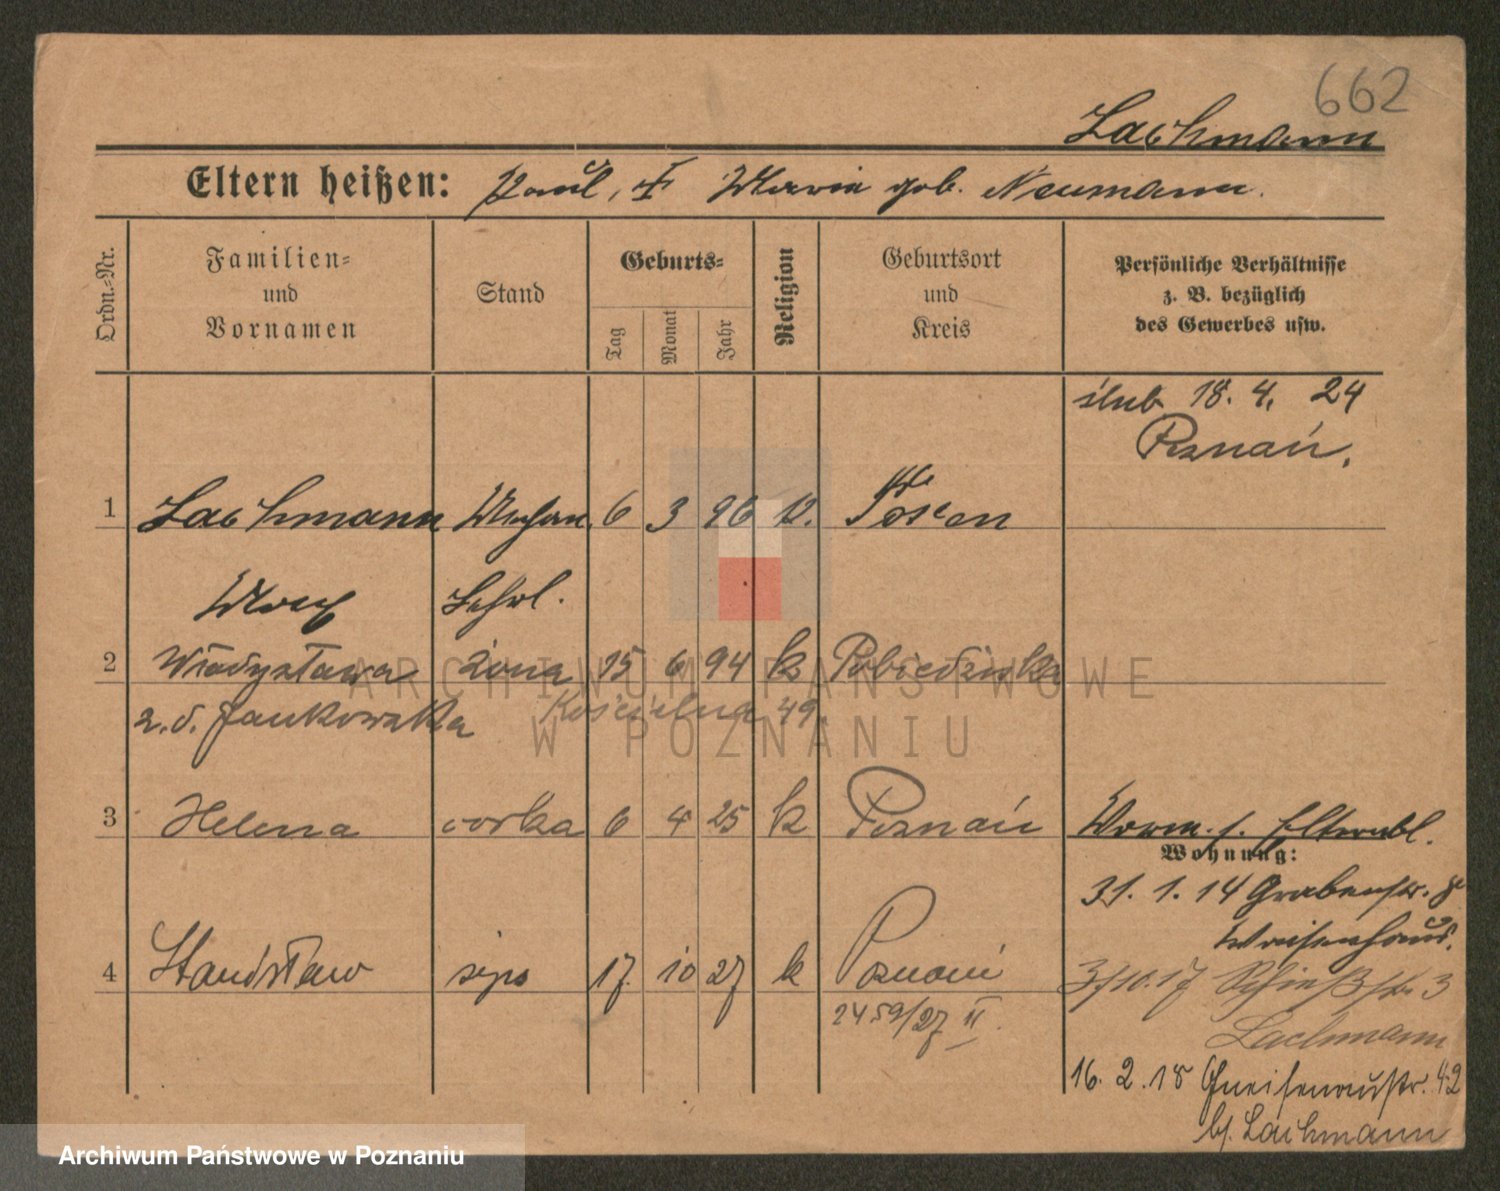 662
Lachmann
Eltern heißen: Paul, Maria geb. Neumann.
Ordn.-Nr.
Familien-
und
Vornamen
Stand
Geburts-
Tag
Monat
Jahr
Religion
Geburtsort
und
Kreis
Persönliche Verhältnisse
z. B. bezüglich
des Gewerbes usw.
ślub 18. 4. 24
Poznań.
1 Lachmann 6 3 96 k. Posen
Max Lehrl.
2 Władysława żona 15 6 94 k Pobiedziska
z. d. Jankowska Kościelna 49.
3 Helena córka 6 4 25 k Poznań
Worm. s. Elternbl.
Wohnung:
31. 1. 14 Grabenstr. 8
Waisenhaus.
4 Stanisław syn 17. 10 27 k Poznań
3/10.17 Schießstr. 3
2459/27 II.
Lachmann
16. 2. 18 Gneisenaustr. 42
bf. Lachmann
ARCHIWUM PAŃSTWOWE
W POZNANIU
Archiwum Państwowe w Poznaniu